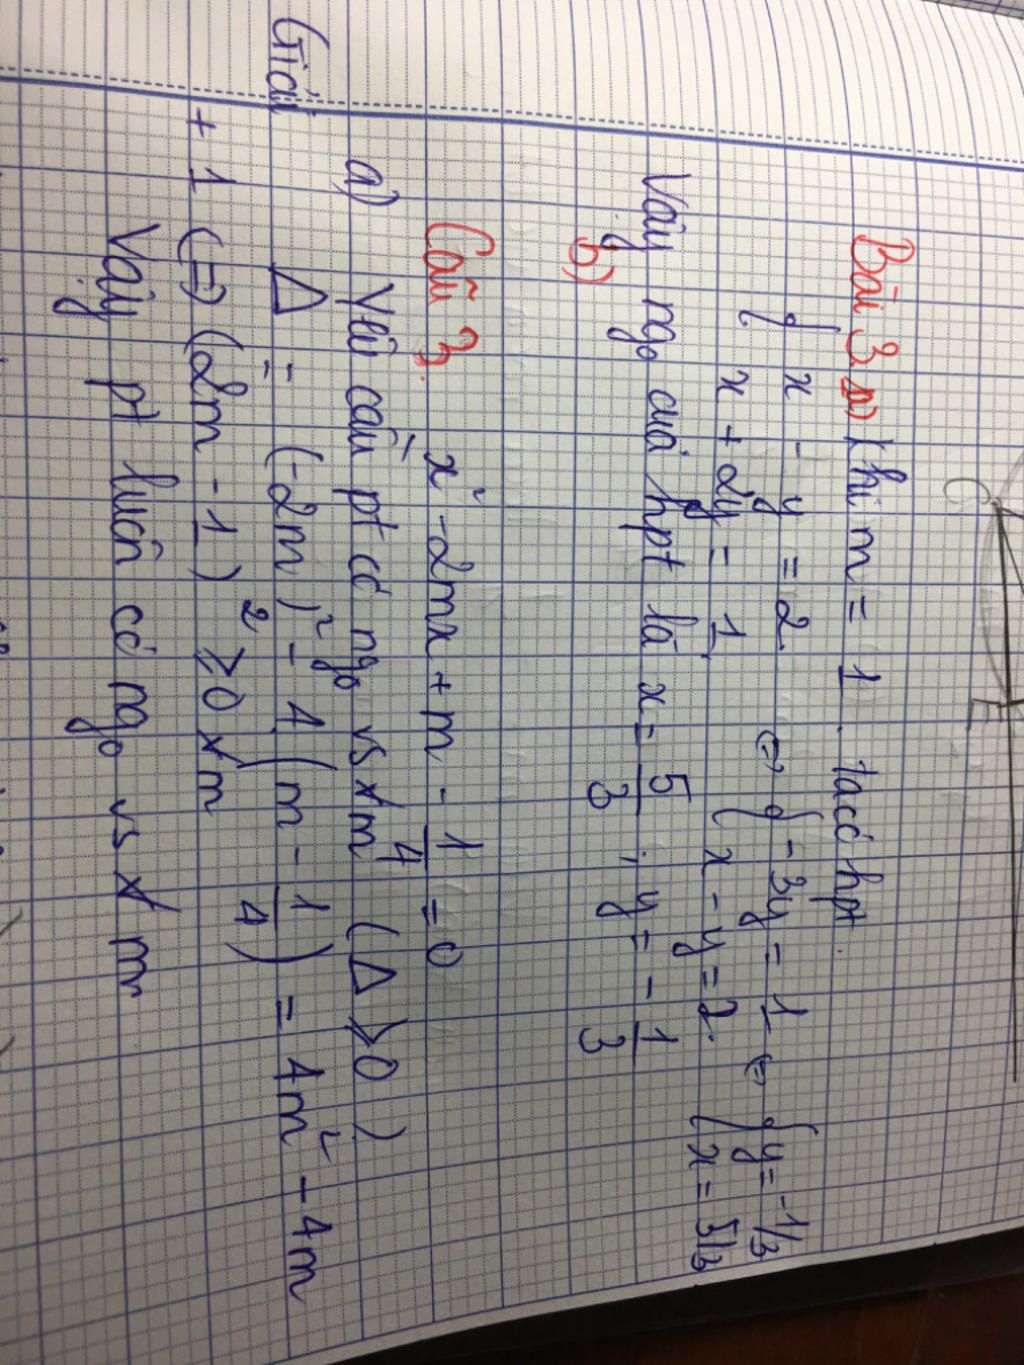 Bài 3 a) Khi m = 1. ta có hpt.
{ x - y = 2 ⇔ { -3y = 1 ⇔ { y = -1/3
x + 2y = 1. x - y = 2. x = 5/3
Vậy ngo của hpt là x = 5/3 ; y = - 1/3
b)
Câu 3. x² - 2mx + m - 1/4 = 0
Giải a) Yêu cầu pt có ngo vs ∀m (Δ ⩾ 0)
Δ = (-2m)² - 4(m - 1/4) = 4m² - 4m
+ 1 (=) (2m - 1)² ⩾ 0 ∀m
Vậy pt luôn có ngo vs ∀ m
C
E